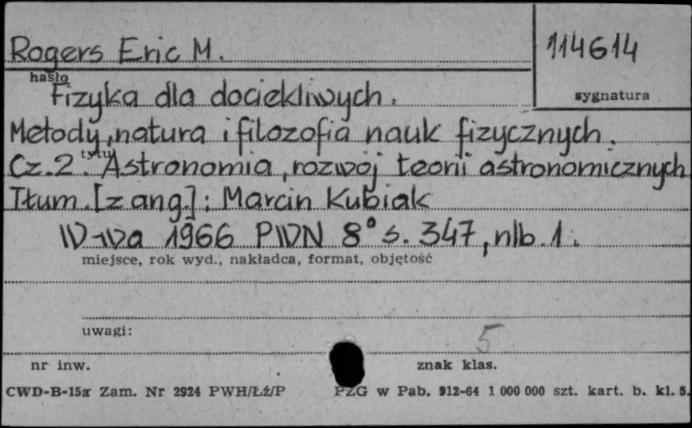 Rogers Eric M.
114614
hasło
sygnatura
Fizyka dla dociekliwych.
Metody, natura i filozofia nauk fizycznych.
tytuł
Cz. 2. Astronomia, rozwój teorii astronomicznych
Tłum. [z ang.]: Marcin Kubiak
W-wa 1966 PWN 8° s. 347, nlb. 1.
miejsce, rok wyd., nakładca, format, objętość
uwagi:
5
nr inw.
znak klas.
CWD-B-15a Zam. Nr 2924 PWH/Łź/P
PZG w Pab. 912-64 1 000 000 szt. kart. b. kl. 5.